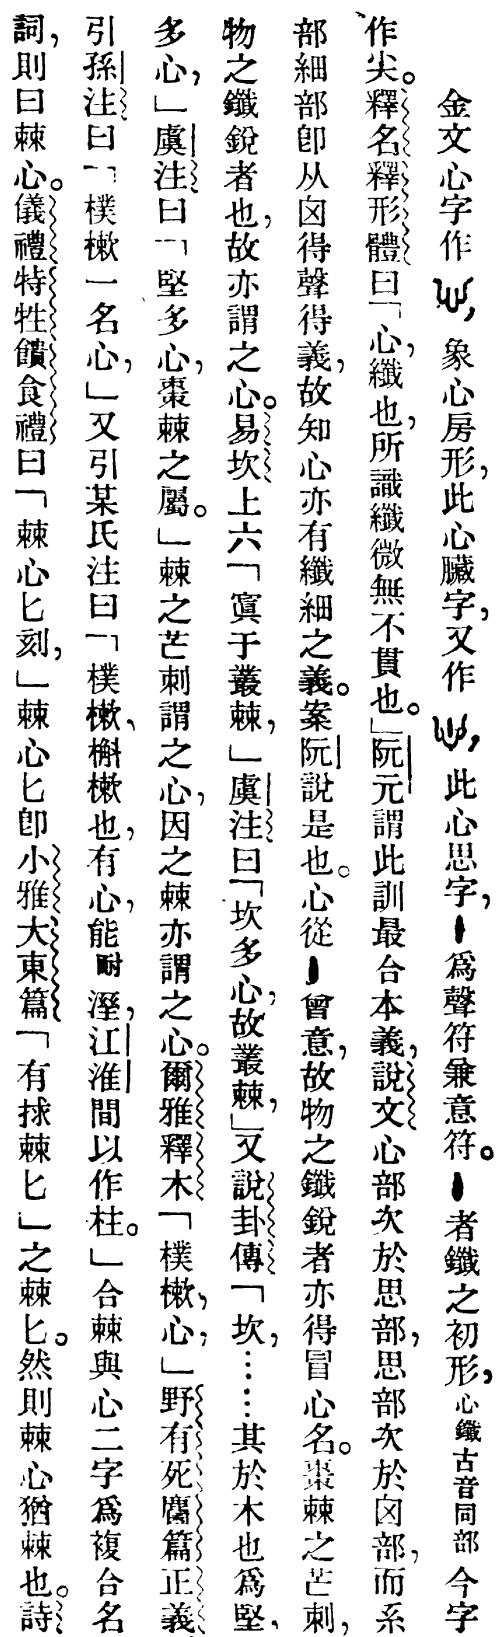 金文心字作，象心房形，此心臟字，又作，此心思字，爲聲符兼意符。者鐵之初形，心鐵古音同部今字
作尖。釋名釋形體曰「心，纖也，所識纖微無不貫也。」阮元謂此訓最合本義，說文心部次於思部，思部次於囟部，而系
部細部卽从囟得聲得義，故知心亦有纖細之義。案阮說是也。心從會意，故物之鐵銳者亦得冒心名。棗棘之芒刺，
物之鐵銳者也，故亦謂之心。易坎上六「寘于叢棘，」虞注曰「坎多心，故叢棘，」又說卦傳「坎，……其於木也爲堅，
多心，」虞注曰「堅多心，棗棘之屬。」棘之芒刺謂之心，因之棘亦謂之心。爾雅釋木「樸樕，心，」野有死麕篇正義
引孫注曰「樸樕一名心，」又引某氏注曰「樸樕、槲樕也，有心，能耐溼，江淮間以作柱。」合棘與心二字爲複合名
詞，則曰棘心。儀禮特牲饋食禮曰「棘心匕刻，」棘心匕卽小雅大東篇「有捄棘匕」之棘匕。然則棘心猶棘也。詩